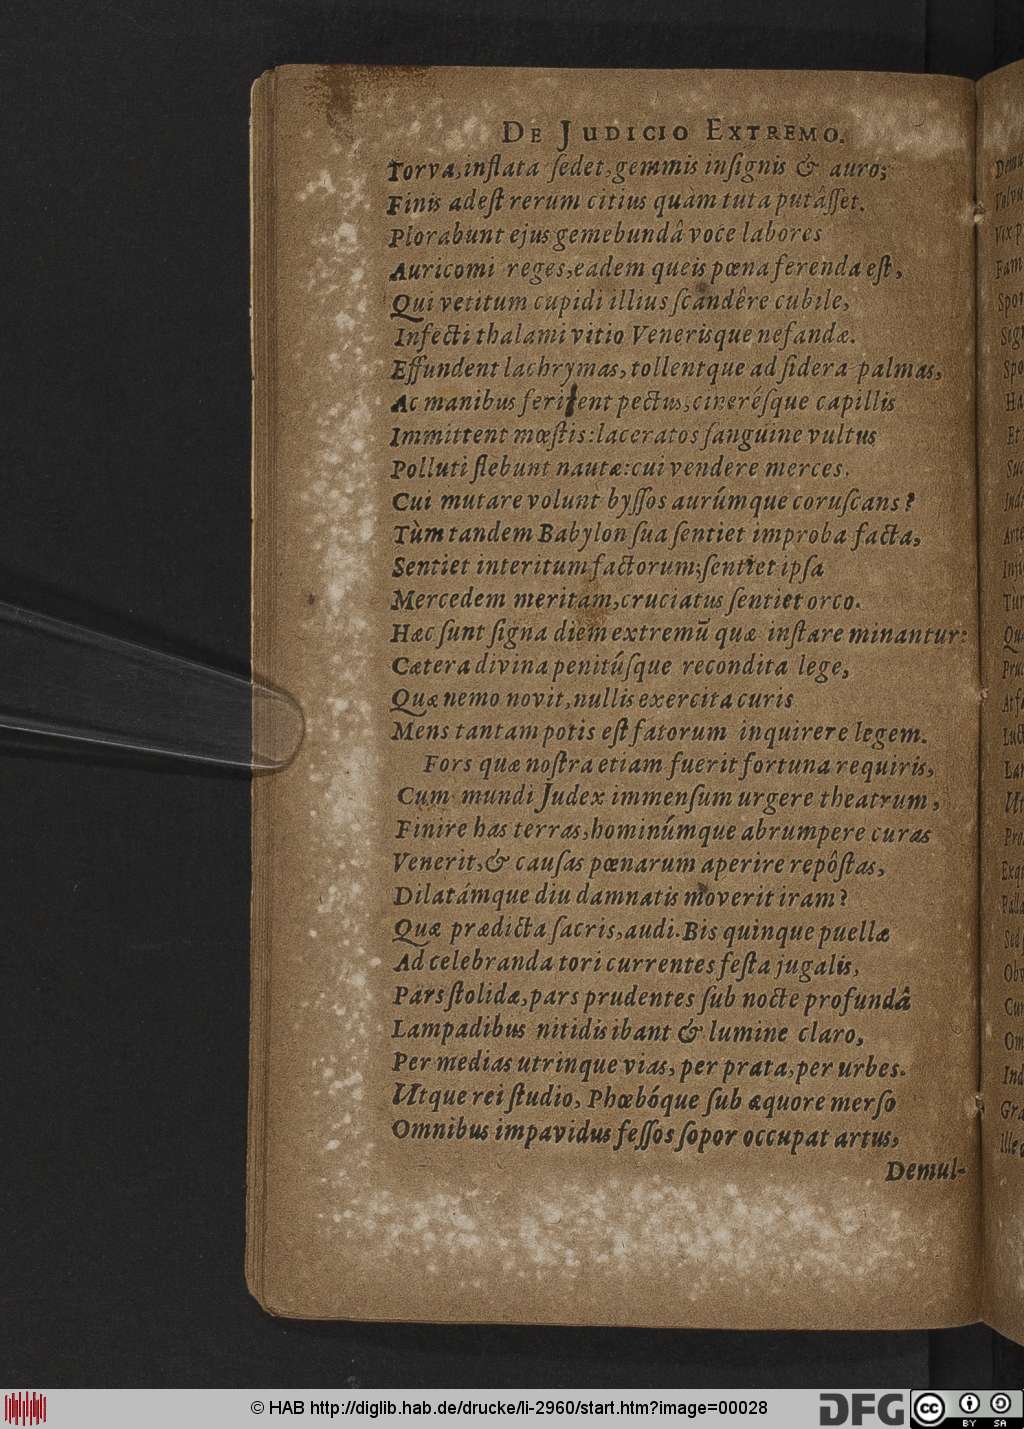 DE JUDICIO EXTREMO.
Torva, inflata ſedet, gemmis inſignis & auro;
Finis adeſt rerum citius quàm tuta putâſſet.
Plorabunt ejus gemebundâ voce labores
Auricomi reges, eadem queis pœna ferenda eſt,
Qui vetitum cupidi illius ſcandêre cubile,
Infecti thalami vitio Venerisque nefandæ.
Effundent lachrymas, tollentque ad ſidera palmas,
Ac manibus ferient pectus, cineréſque capillis
Immittent mœſtis: laceratos ſanguine vultus
Polluti flebunt nautæ: cui vendere merces.
Cui mutare volunt byſſos aurúmque coruſcans?
Tùm tandem Babylon ſua ſentiet improba facta,
Sentiet interitum factorum; ſentiet ipſa
Mercedem meritam, cruciatus ſentiet orco.
Hæc ſunt ſigna diem extremũ quæ inſtare minantur:
Cætera divina penitúſque recondita lege,
Quæ nemo novit, nullis exercita curis
Mens tantam potis eſt fatorum inquirere legem.
Fors quæ noſtra etiam fuerit fortuna requiris,
Cum mundi Judex immenſum urgere theatrum,
Finire has terras, hominúmque abrumpere curas
Venerit, & cauſas pœnarum aperire repôſtas,
Dilatámque diu damnatis moverit iram?
Quæ prædicta ſacris, audi. Bis quinque puellæ
Ad celebranda tori currentes feſta jugalis,
Pars ſtolidæ, pars prudentes ſub nocte profundâ
Lampadibus nitidis ibant & lumine claro,
Per medias utrinque vias, per prata, per urbes.
Utque rei ſtudio, Phœbóque ſub æquore merſo
Omnibus impavidus feſſos ſopor occupat artus,
Demul-
© HAB http://diglib.hab.de/drucke/li-2960/start.htm?image=00028
DFG
cc BY SA